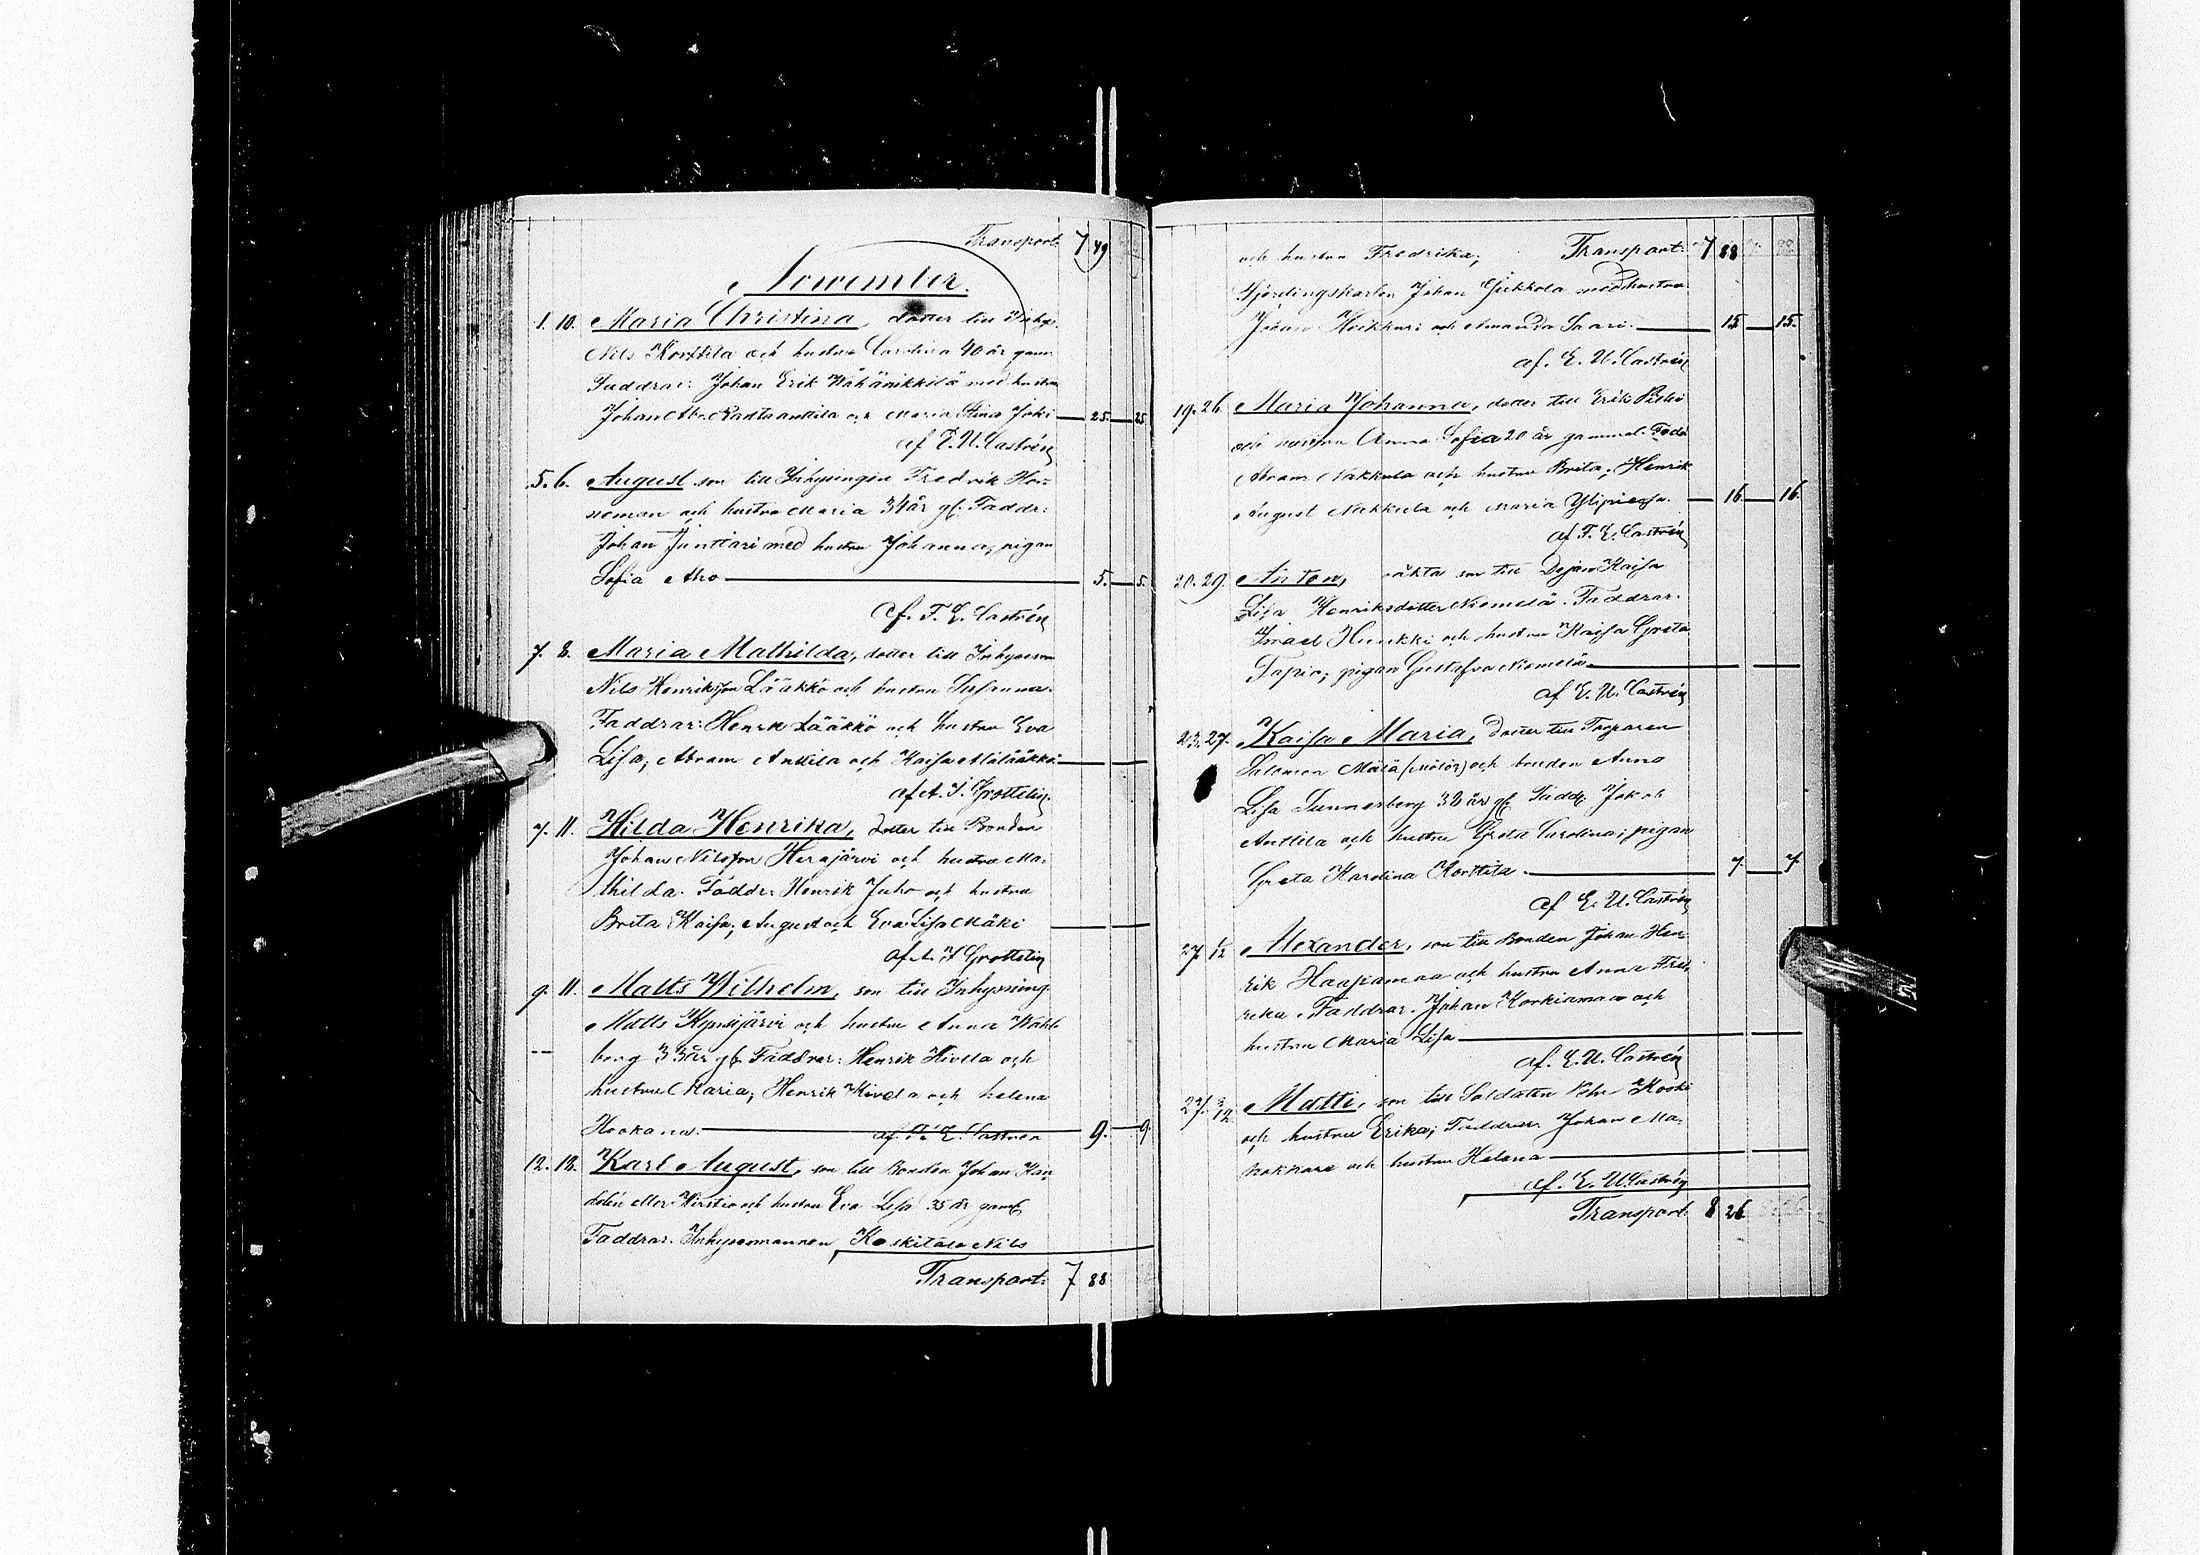 Transport: 7 49
November.
1. 10. Maria Christina, dotter till Inhys.
Nils Korttila och hustru Carolina 40 år gam
Faddrar: Johan Erik Wähänikkilä med hustru
Johan Abr. Rautaanttila och Maria Stina Joki 25. 25
af E. U. Castrén
5. 6. August son till Inhysingen Fredrik Hou-
neman och hustru Maria 34 år gl. Faddr:
Johan Junttari med hustru Johanna, pigan
Sofia Aho 5. 5.
af. F. E. Castrén
7. 8. Maria Mathilda, dotter till Inhysesm
Nils Henriksson Lääkkö och hustru Susanna.
Faddrar: Henrik Lääkkö och hustru Eva
Lisa; Abram Anttila och Kaisa Alalääkkö
af A. I. Grottelin.
7. 11. Hilda Henrika, dotter till Bonden
Johan Nilsson Herajärvi och hustru Ma-
thilda. Faddr: Henrik Juho och hustru
Brita Kaisa; August och Eva Lisa Mäki
af A. I Grottelin
9. 11. Matts Wilhelm, son till Inhysning.
Matts och hustru Anna Wahl-
berg 33 år gl. Faddrar: Henrik Hivela och
hustru Maria; Henrik Hivela och helena
Hookana. af. F. E. Castren 9. 9
12. 12. Karl August, son till Bonden Johan Kan-
dolin eller och hustru Eva Lisa 35 år gamb
Faddrar. Inhysesmannen Koskitalo Nils
Transport: 7 88
och hustru Fredrika; Transport: 7 88
Fjerdingskarlen Johan Jukkola med hustru
Johan Heikkuri och Amanda Saari. 15 15.
af. E. U. Castrén
19. 26. Maria Johanna, dotter till Erik
och hustru Anna Sofia 20 år gammal. Fadd
Abram Nakkula och hustru Brita; Henrik
August Nakkula och Maria Ylipiessa. 16. 16.
af F. E. Castrén
20. 29. Anton, oäkta son till Dejan Kaisa
Lisa Henriksdotter Niemelä. Faddrar.
Israel Hunkki och hustru Kaisa Greta
Tapio; pigan Gustafva Niemelä
af E. U. Castrén
23. 27. Kaisa Maria, dotter till Torparen
Salomon Mälä (Mölör) och bruden Anna
Lisa Sunnerberg 38 år gl. Faddr Jakob
Anttila och hustru Greta Carolina; pigan
Greta Karolina Korttila. 7. 7.
af E. U. Castrén
27. 1/12 Alexander, son till Bonden Johan Hen-
rik Haapamaa och hustru Anna Fred-
rika. Faddrar. Johan Korkiamaa och
hustru Maria Lisa
af. E. U. Castrén
27/. 3/12. Matti, son till Soldaten Koski
och hustru Erika; Faddrar. Johan Ma-
kokkare och hustru Helena
af. E. U Castrén
Transport. 8 26.